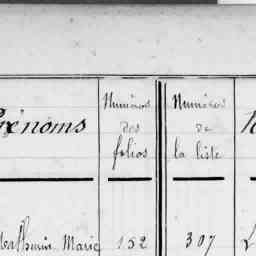 Prénoms
Numéros des folios
Numéros de la liste
Marie 152 307